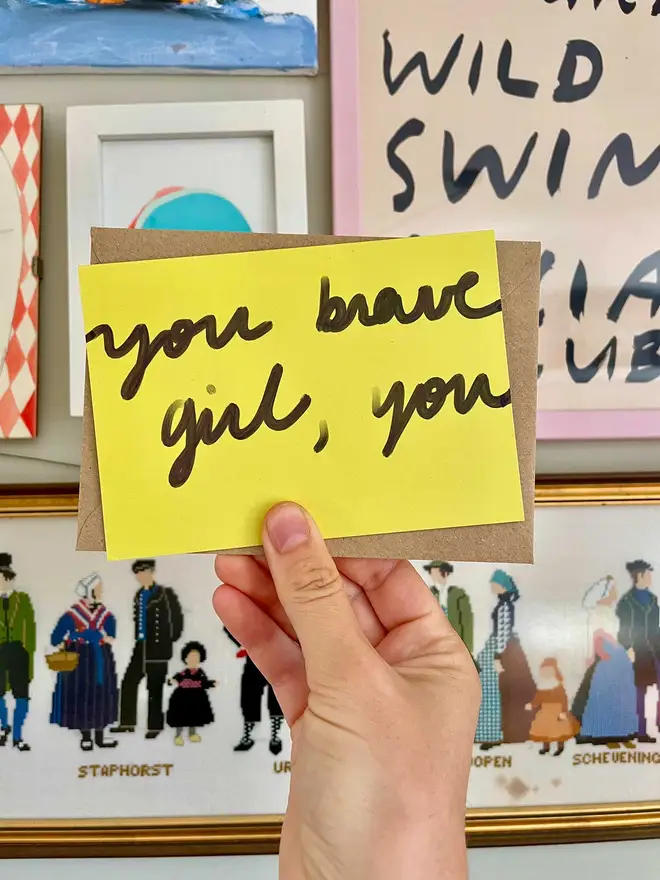 WILD
SWIM
you brave
girl, you
STAPHORST
UR
OPEN
SCHEVENING